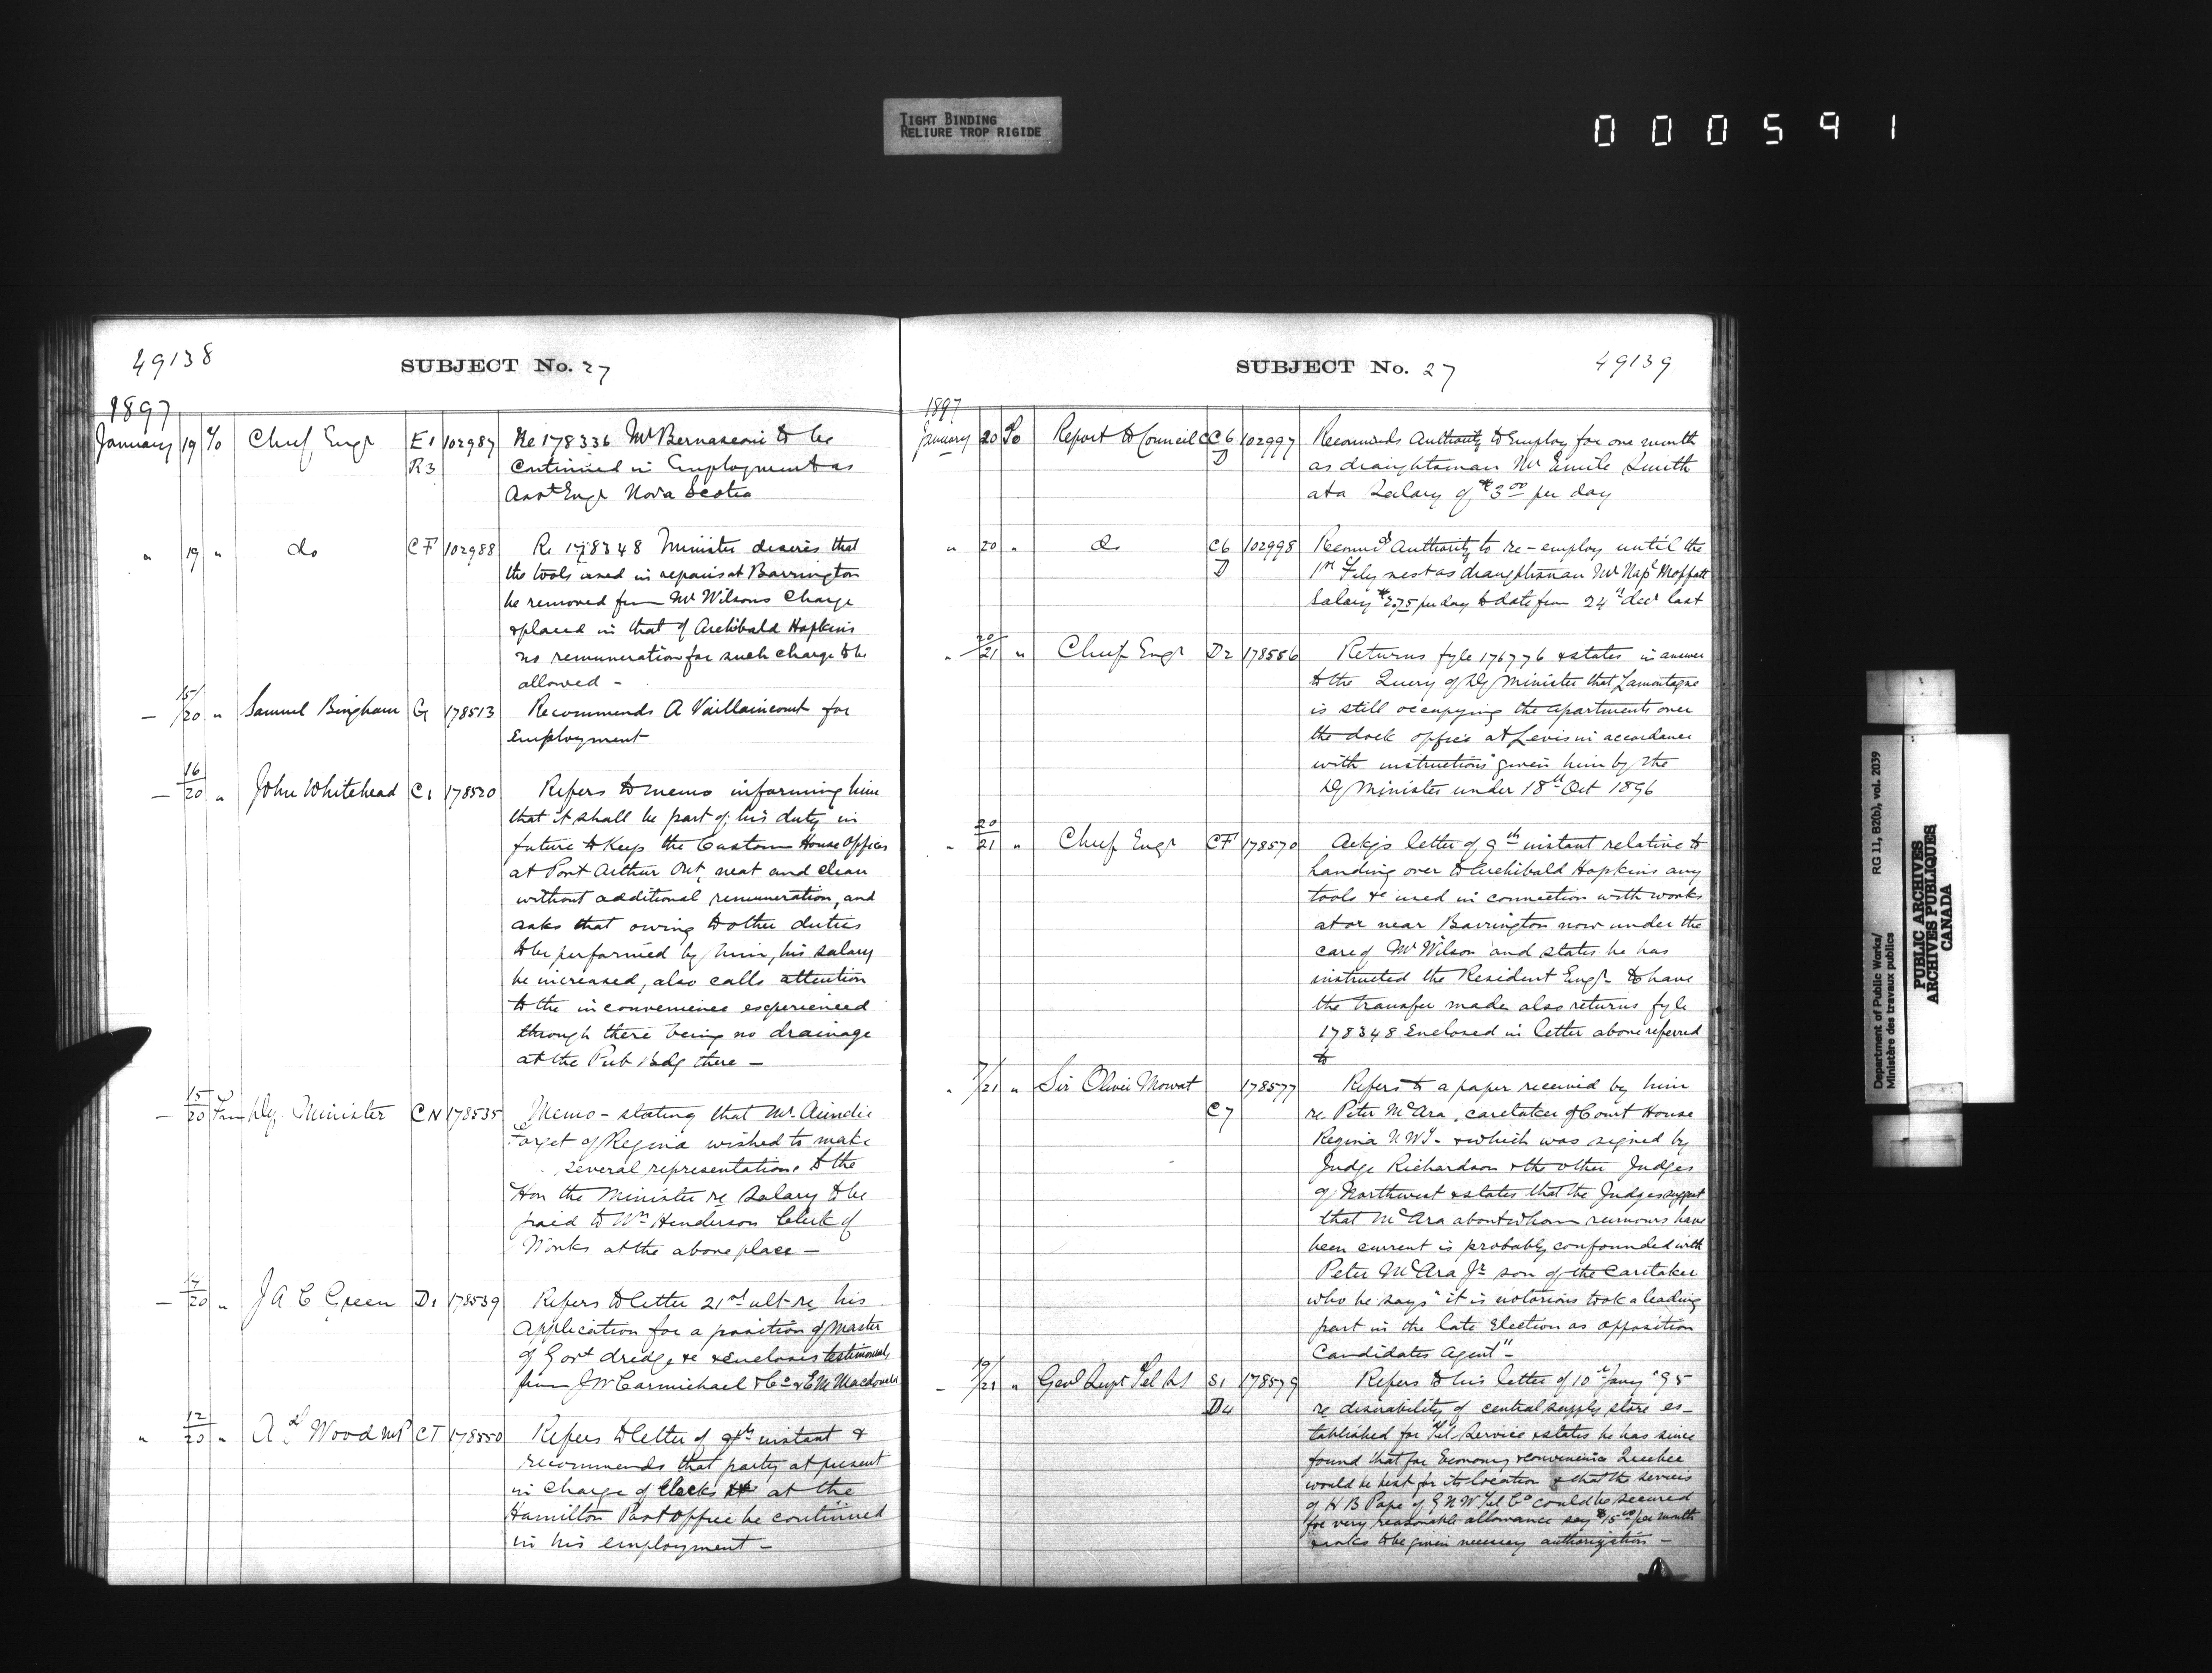 TIGHT BINDING
RELIURE TROP RIGIDE
000591
49138
SUBJECT No. 27
1897
January 19 To Chief Engr E1 102987 Re 178336 Mr Bernasconi to be
R3 Continued in Employment as
Asst Engr Nova Scotia
" 19 " do CF 102988 Re 178348 Minister desires that
the tools used in repairs at Barrington
be removed from Mr Wilsons Charge
& placed in that of Archibald Hopkins
no remuneration for such charge to be
allowed -
- 15/20 " Samuel Bingham G 178513 Recommends A Vaillaincourt for
Employment
- 16/20 " John Whitehead C1 178520 Refers to memo informing him
that it shall be part of his duty in
future to Keep the Custom House Offices
at Port Arthur Ont, neat and clean
without additional remuneration, and
asks that owing to other duties
to be performed by him, his salary
be increased, also calls attention
to the inconvenience experienced
through there being no drainage
at the Pub Bdg there -
- 15/20 From Dy. Minister CN 178535 Memo - stating that Mr
Forget of Regina wished to make
several representations to the
Hon the Minister re Salary to be
paid to Wm Henderson Clerk of
Works at the above place -
- 17/20 " J A C Green D1 178539 Refers to letter 21st ult re his
Application for a position of Master
of Govt dredge &c & encloses testimonials
from J W Carmichael & Co & E M Macdonald
" 12/20 " A. T. Wood MP CT 178550 Refers to letter of 9th instant &
recommends that party at present
in charge of Clocks at the
Hamilton Post Office be continued
in his employment -
SUBJECT No. 27
49139
1897
January 20 To Report to Council C6 102997 Recommds Authority to Employ for one month
D as draughtsman Mr Emile Smith
at a Salary of $3.00 per day
" 20 " do C6 102998 Recommds Authority to re-employ until the
D 1st July next as draughtsman Mr Napn Moffatt
Salary $2.75 per day to date from 24th decr last
" 20/21 " Chief Engr D2 178556 Returns fyle 176776 & states in answer
to the Query of Dy Minister that Lamontagne
is still occupying the apartments over
the dock office at Levis in accordance
with instructions given him by the
Dy Minister under 18th Oct 1896
" 20/21 " Chief Engr CF 178570 Ackgs letter of 9th instant relative to
handing over to Archibald Hopkins any
tools &c used in connection with works
at or near Barrington now under the
care of Mr Wilson and states he has
instructed the Resident Engr to have
the transfer made also returns fyle
178348 Enclosed in letter above referred
to
" 7/21 " Sir Oliver Mowat 178577 Refers to a paper received by him
C7 re Peter McAra, caretaker of Court House
Regina N.W.T. & which was signed by
Judge Richardson & the other Judges
of Northwest & states that the Judges suggest
that McAra about whom rumours have
been current is probably confounded with
Peter McAra Jr son of the Caretaker
who he says "it is notorious took a leading
part in the late Election as opposition
Candidates Agent" -
- 19/21 " Genl Supt Tel S1 178579 Refers to his letter of 10th Jany '95
D4 re desirability of central supply store es-
tablished for Tel Service & states he has since
found that for Economy & convenience Quebec
would be best for its location & that the services
of H B Pape of G N W Tel Co could be secured
for very reasonable allowance say $15.00 per month
& asks to be given necessary authorization -
Department of Public Works/
Ministère des travaux publics
RG 11, B2(b), vol. 2039
PUBLIC ARCHIVES
ARCHIVES PUBLIQUES
CANADA